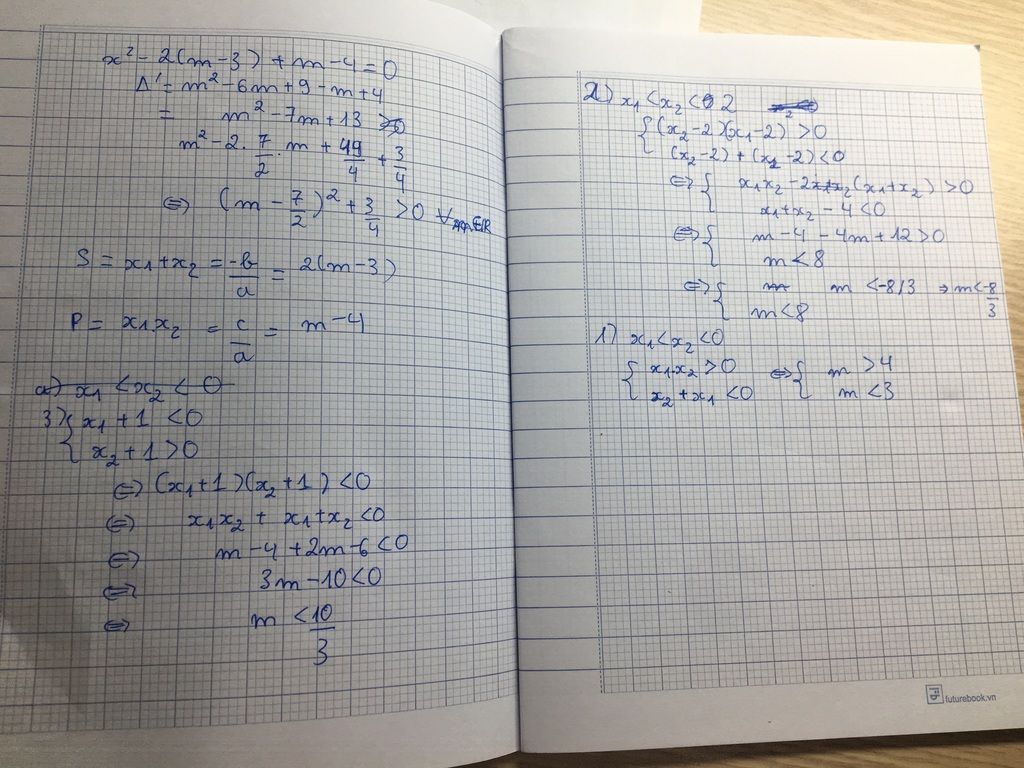 x² - 2(m-3) + m - 4 = 0
Δ' = m² - 6m + 9 - m + 4
= m² - 7m + 13 > 0
m² - 2. 7/2 . m + 49/4 + 3/4
⇔ (m - 7/2)² + 3/4 > 0 ∀m∈R
S = x₁+x₂ = -b/a = 2(m-3)
P = x₁x₂ = c/a = m-4
a) x₁ < x₂ < 0
3) { x₁ + 1 < 0
x₂ + 1 > 0
⇔ (x₁+1)(x₂+1) < 0
⇔ x₁x₂ + x₁+x₂ < 0
⇔ m - 4 + 2m - 6 < 0
⇔ 3m - 10 < 0
⇔ m < 10/3
2) x₁ < x₂ < 2
{ (x₂-2)(x₁-2) > 0
(x₂-2) + (x₁-2) < 0
⇔ { x₁x₂ - 2(x₁+x₂) > 0
x₁+x₂ - 4 < 0
⇔ { m - 4 - 4m + 12 > 0
m < 8
⇔ { m < -8/3 ⇒ m < -8/3
m < 8
1) x₁ < x₂ < 0
{ x₁.x₂ > 0 ⇔ { m > 4
x₂ + x₁ < 0 m < 3
futurebook.vn